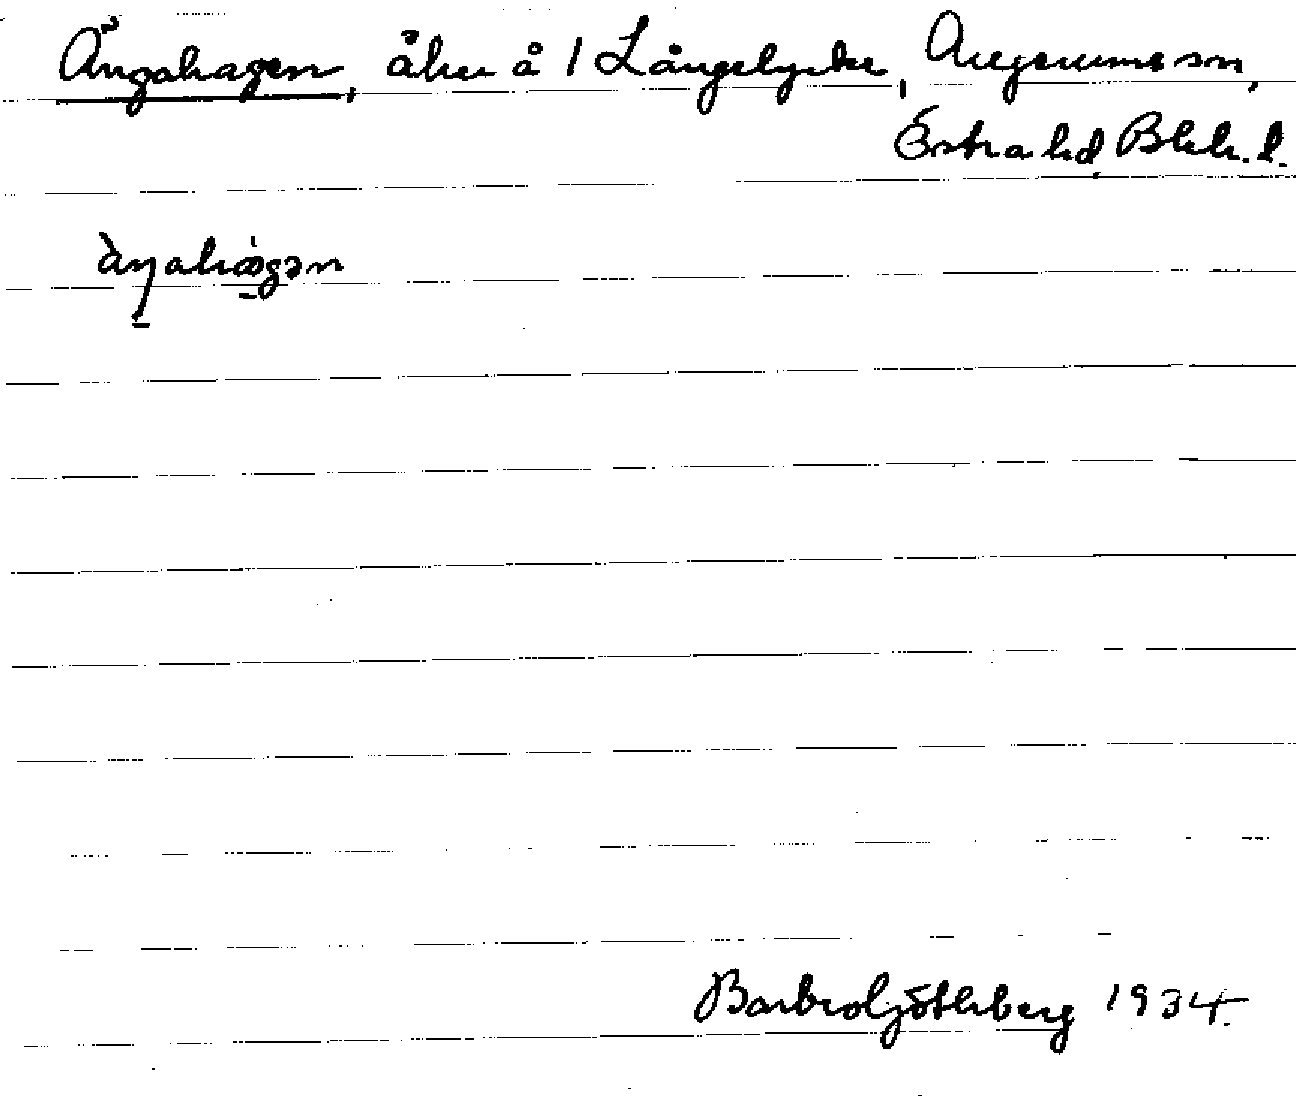 Ängahagen, åker å 1 Långelycke, Augerums sn,
Östra hd, Blek. l.
àŋahàgən
Barbro Götherberg 1934.